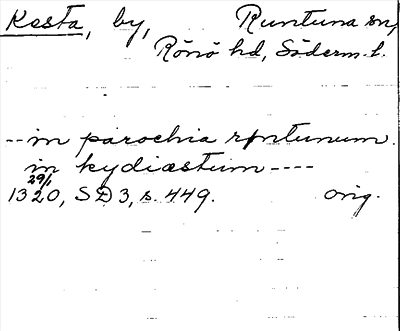 Kesta, by, Runtuna sn,
Rönö hd, Söderm. l.
-- in parochia rontunum.
in kydiæstum ----
29/1
1320, SD 3, s. 449. orig.